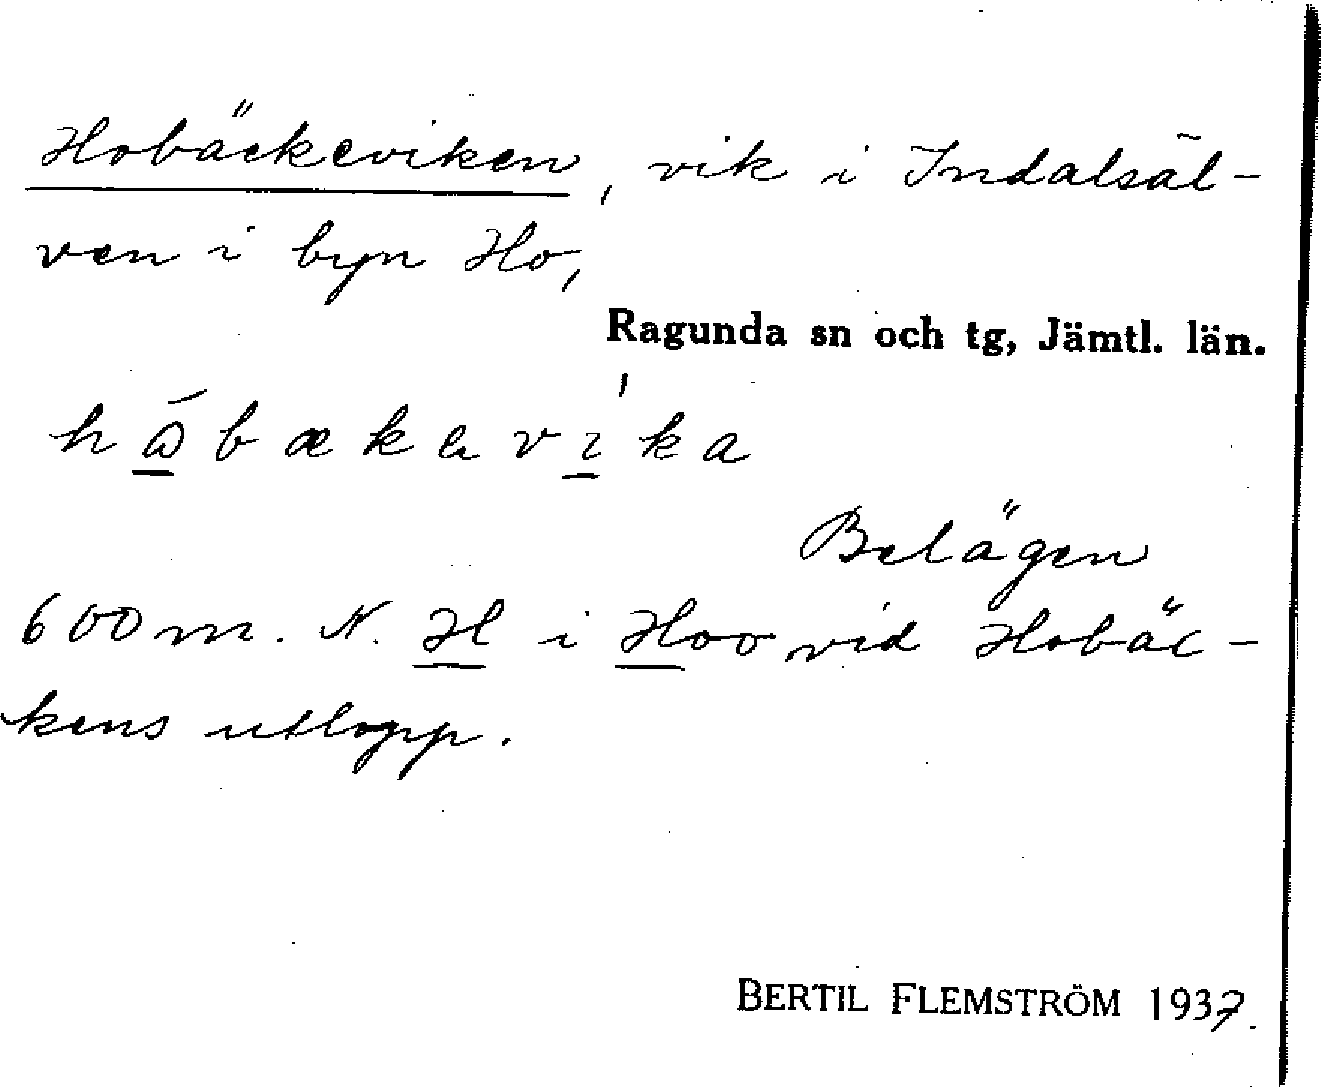 Hobäckeviken, vik i Indalsäl-
ven i byn Ho,
Ragunda sn och tg, Jämtl. län.
Belägen
600 m. N. H i Hoo vid Hobäc-
kens utlopp.
BERTIL FLEMSTRÖM 1937.